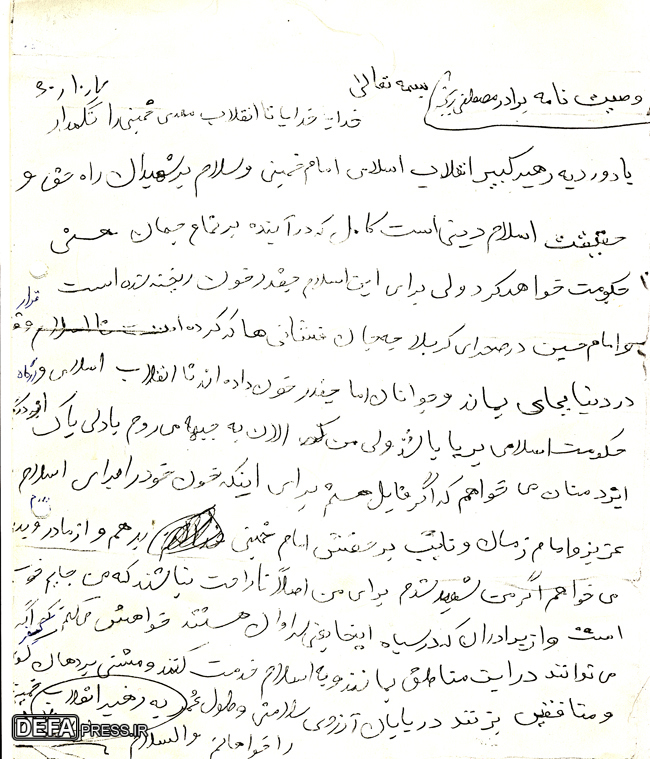 بسمه تعالی
۶۰/۱۰/
وصیت نامه برادر مصطفی
خدایا خدایا تا انقلاب مهدی خمینی را نگهدار
با درود به رهبر کبیر انقلاب اسلامی امام خمینی و سلام بر شهیدان راه حق و
حقیقت اسلام دینی است کامل که در آینده بر تمام جهان
حکومت خواهد کرد ولی برای این اسلام چقدر خون ریخته شده است
قرار
و امام حسین در صحرای کربلا چه جان فشانی ها که کرده است تا اسلام
در دنیا بجای بماند و جوانان ما چقدر خون داده اند تا انقلاب اسلامی و
حکومت اسلامی برپا باشد ولی من که الان به جبهه می روم با دلی پاک از
ایزد منان می خواهم که اگر قابل هستم برای اینکه خون خود را برای اسلام
عزیز و امام زمان و نائب بر حقش امام خمینی بدهم و از مادر و پدر
می خواهم اگر من شهید شدم برای من اصلاً ناراحت نباشند که من جایم خوب
است و از برادران که در سپاه اینجا یعنی هستند خواهش می کنم که اگر
می توانند در این مناطق بمانند و به اسلام خدمت کنند و مشتی بر دهان
و منافقین بزنند در پایان آرزوی سلامتی و طول عمر به رهبر انقلاب خمینی
را خواهانم والسلام
DEFAPRESS.IR